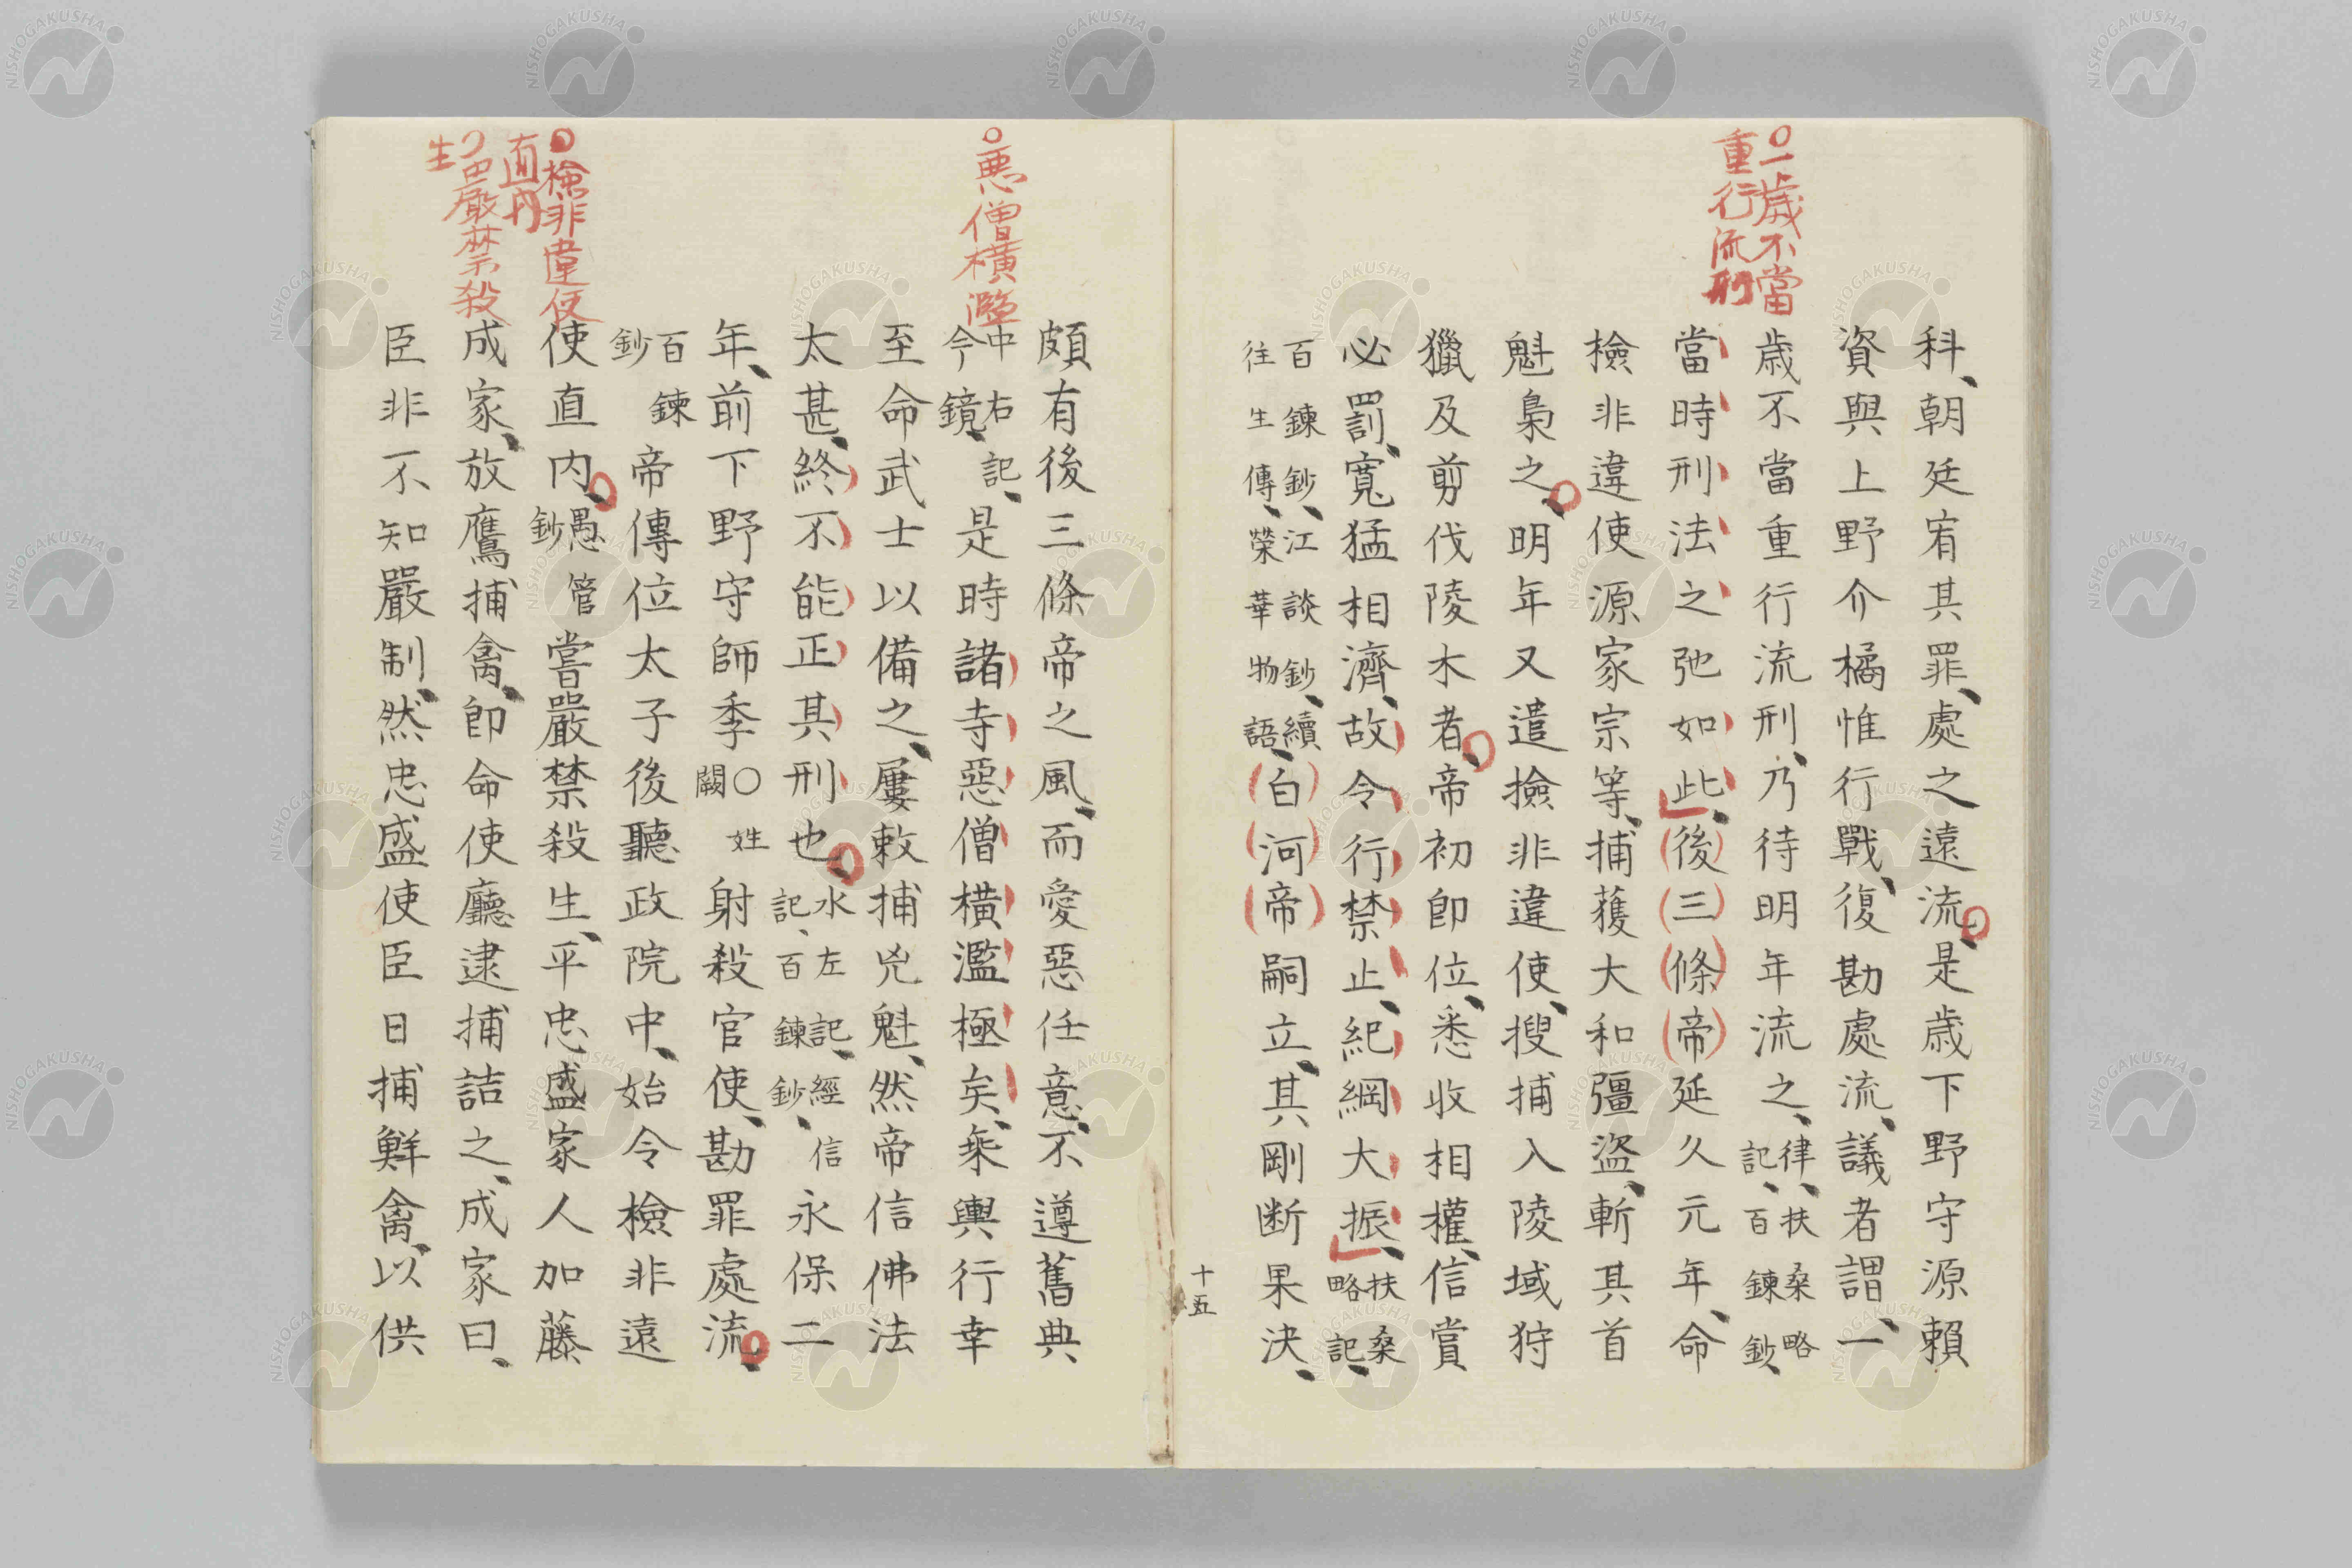 ○一歳不當
重行流刑
科、朝廷宥其罪、處之遠流、是歳下野守源賴
資與上野介橘惟行戰、復勘處流、議者謂、一
歳不當重行流刑、乃待明年流之、律、扶桑略記、百鍊鈔、
當時刑法之弛如此、後三條帝延久元年、命
檢非違使源家宗等、捕獲大和彊盜、斬其首
魁梟之、明年又遣撿非違使、搜捕入陵域狩
獵及剪伐陵木者、帝初卽位、悉收相權、信賞
必罰、寬猛相濟、故令行禁止、紀綱大振、扶桑略記、
百鍊鈔、江談鈔、續往生傳、榮華物語、白河帝嗣立、其剛断果決、
十五
○悪僧橫濫
頗有後三條帝之風、而愛惡任意、不遵舊典
中右記、今鏡、是時諸寺惡僧橫濫極矣、乘輿行幸
至命武士以備之、屢敕捕兇魁、然帝信佛法
太甚、終不能正其刑也、水左記、經信記、百鍊鈔、永保二
年、前下野守師季○姓闕射殺官使、勘罪處流、
百鍊鈔帝傳位太子後聽政院中、始令檢非遠
○檢非違使
直内
○巴嚴禁殺
生
使直内、愚管鈔嘗嚴禁殺生、平忠盛家人加藤
成家、放鷹捕禽、卽命使廳逮捕詰之、成家曰、
臣非不知嚴制、然忠盛使臣日捕鮮禽、以供